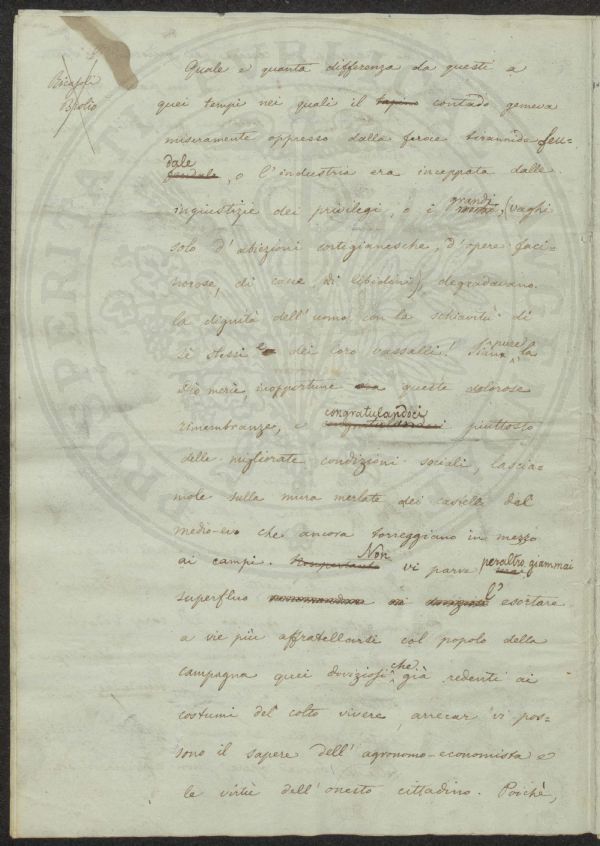 Ricapoli
Bpolio
Quale e quanta differenza da questi a
quei tempi nei quali il tapino contado gemeva
miseramente oppresso dalla feroce tirannide feu-
dale
feudale, e l'industria era inceppata dalle
grandi
ingiustizie dei privilegi, e i (vaghi
solo d'abiezioni cortigianesche, d'opere faci-
norose, di cacce, di libidini), degradavano
la dignità dell'uomo con la schiavitù di
sè stessi e dei loro vassalli! Siano pure la
Dio mercè, inopportune queste dolorose
congratulandoci
rimembranze, e congratulandoci piuttosto
delle migliorate condizioni sociali, lascia-
mole sulla mura merlate dei castelli del
medio-evo che ancora torreggiano in mezzo
Non
ai campi. Nonpertanto vi parve peraltro giammai
superfluo raccomandare l' esortare
a vie più affratellarsi col popolo della
campagna quei doviziosi che già redenti ai
costumi del colto vivere, arrecar vi pos-
sono il sapere dell'agronomo-economista e
le virtù dell'onesto cittadino. Poichè,